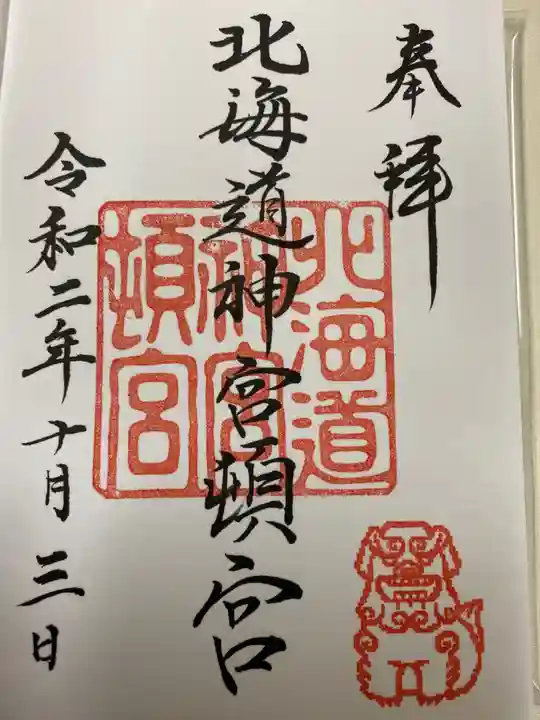 奉拝
北海道神宮頓宮
北海道
神宮
頓宮
令和二年十月三日